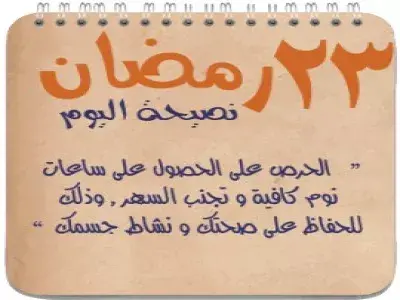 ٢٣ رمضان
نصيحة اليوم
” الحرص على الحصول على ساعات
نوم كافية و تجنب السهر , وذلك
للحفاظ على صحتك و نشاط جسمك “